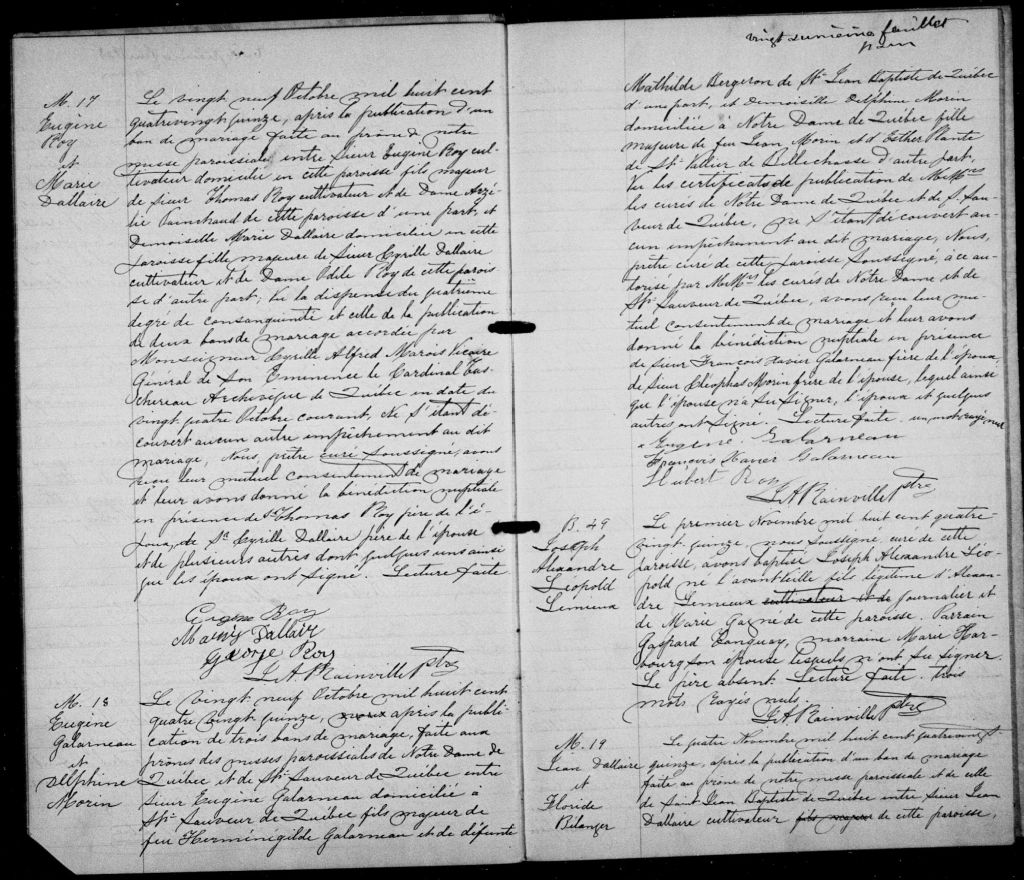 M. 17
Eugène
Roy
et
Marie
Dallaire
Le vingt neuf Octobre mil huit cent
quatrevingt quinze, après la publication d'un
ban de mariage faite au prône de notre
messe paroissiale entre Sieur Eugène Roy cul-
tivateur domicilié en cette paroisse fils majeur
de Sieur Thomas Roy cultivateur et de Dame Arzé-
lie Painchaud de cette paroisse d'une part, et
Demoiselle Marie Dallaire domiciliée en cette
paroisse fille majeure de Sieur Cyrille Dallaire
cultivateur et de Dame Odile Roy de cette parois
se d'autre part; Vu la dispense du quatrième
degré de consanguinité et celle de la publication
de deux bans de mariage accordée par
Monseigneur Cyrille Alfred Marois Vicaire
Général de Son Eminence le Cardinal Tas-
chereau Archevêque de Québec en date du
vingt quatre Octobre courant, Ne s'étant dé-
couvert aucun autre empêchement au dit
mariage, Nous, prêtre curé soussigné, avons
reçu leur mutuel consentement de mariage
et leur avons donné la bénédiction nuptiale
en présence de Sr Thomas Roy père de l'é-
poux, de Sr Cyrille Dallaire père de l'épouse
et de plusieurs autres dont quelques uns ainsi
que les époux ont signé. Lecture faite
Eugène Roy
Marie Dallaire
George Roy
J.A. Rainville Ptre
M. 18
Eugène
Galarneau
et
Delphine
Morin
Le vingt neuf Octobre mil huit cent
quatre vingt quinze, après la publi-
cation de trois bans de mariage, faite aux
prônes des messes paroissiales de Notre Dame de
Québec et de St Sauveur de Québec entre
Sieur Eugène Galarneau domicilié à
St Sauveur de Québec fils majeur de
feu Herménégilde Galarneau et de défunte
vingt unième feuillet
Mathilde Bergeron de St Jean Baptiste de Québec
d'une part, et Demoiselle Delphine Morin
domiciliée à Notre Dame de Québec fille
majeure de feu Jean Morin et d'Esther Plante
de St Vallier de Bellechasse d'autre part.
Vu les certificats de publication de MM
les curés de Notre Dame de Québec et de S. Sau-
veur de Québec, ne s'étant découvert au-
cun empêchement au dit mariage, Nous,
prêtre curé de cette paroisse soussigné, à ce au-
torisé par MM les curés de Notre Dame et de
St Sauveur de Québec, avons reçu leur mu-
tuel consentement de mariage et leur avons
donné la bénédiction nuptiale en présence
de Sieur François Xavier Galarneau frère de l'époux,
de Sieur Cléophas Morin frère de l'épouse, lequel ainsi
que l'épouse n'a su signer, l'époux et quelques
autres ont signé. Lecture faite. un mot rayé nul
Eugène Galarneau
François Xavier Galarneau
Hubert Roy
J.A. Rainville Ptre
B. 49
Joseph
Alexandre
Léopold
Lemieux
Le premier Novembre mil huit cent quatre-
vingt quinze nous soussigné, curé de cette
paroisse, avons baptisé Joseph Alexandre Léo-
pold né l'avant veille fils légitime d'Alexan-
dre Lemieux cultivateur et de journalier et
de Marie Gagné de cette paroisse. Parrain
Gaspard Tanguay, marraine Marie Har-
bourg son épouse lesquels n'ont su signer.
Le père absent. Lecture faite. trois
mots rayés nuls.
J.A. Rainville Ptre
M. 19
Jean Dallaire
et
Floride
Bélanger
Le quatre Novembre mil huit cent quatrevingt
quinze, après la publication d'un ban de mariage
faite au prône de notre messe paroissiale et de celle
de Saint Jean Baptiste de Québec entre Sieur Jean
Dallaire cultivateur fils majeur de cette paroisse,